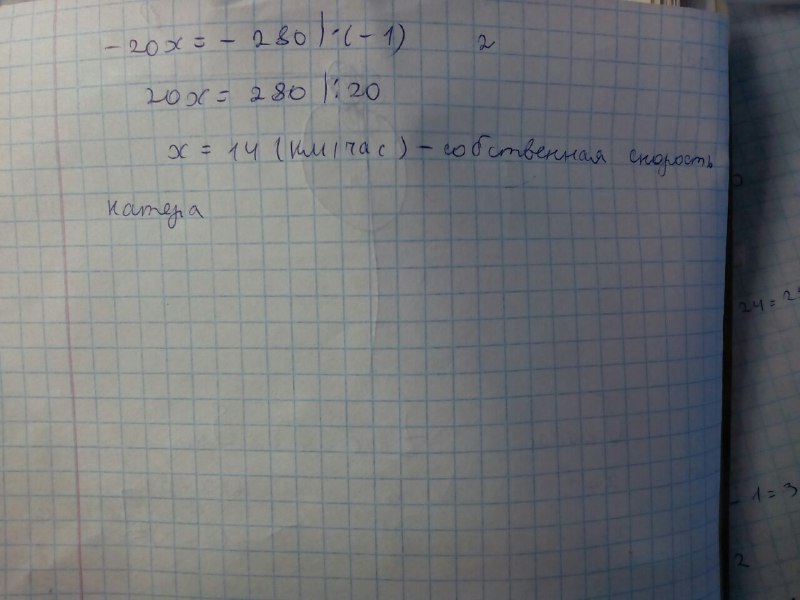 -20x = - 280 |·(-1) 2
20x = 280 |:20
x = 14 (км/час) - собственная скорость
катера
24 = 2
- 1 = 3
2